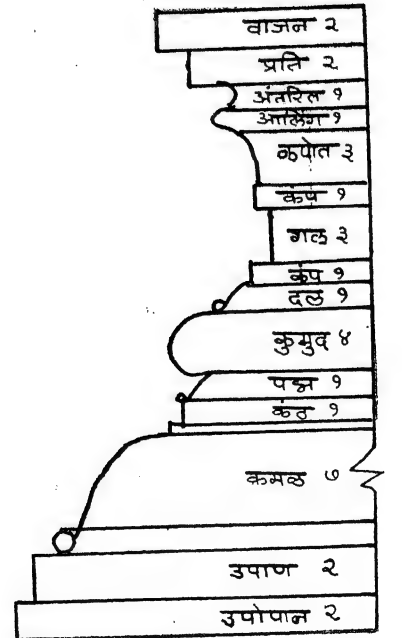 वाजन २
प्रति २
अंतरित १
आलिंग १
कपोत ३
कंप १
गल ३
कंप १
दल १
कुमुद ४
पद्म १
कंठ १
कमळ ७
उपाण २
उपोपान २